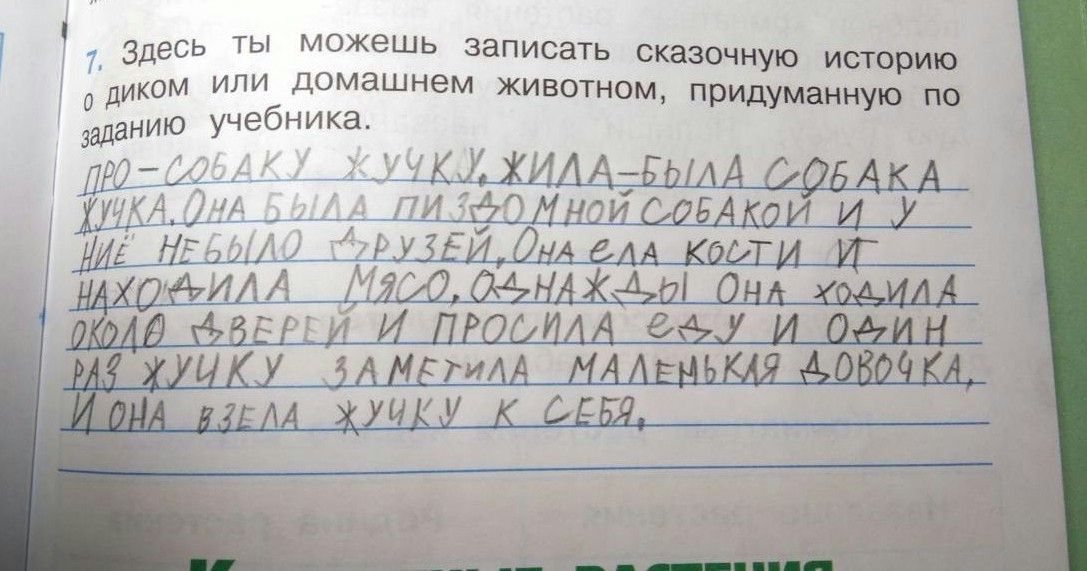 7. Здесь ты можешь записать сказочную историю
о диком или домашнем животном, придуманную по
заданию учебника.
ПРО-СОБАКУ ЖУЧКУ. ЖИЛА-БЫЛА СОБАКА
ЖУЧКА. ОНА БЫЛА ПИЗДОМНОЙ СОБАКОЙ И У
НИЁ НЕБЫЛО ДРУЗЕЙ, ОНА ЕЛА КОСТИ И
НАХОДИЛА МЯСО, ОДНАЖДЫ ОНА ХОДИЛА
ОКОЛО ДВЕРЕЙ И ПРОСИЛА ЕДУ И ОДИН
РАЗ ЖУЧКУ ЗАМЕТИЛА МАЛЕНЬКАЯ ДОВОЧКА,
И ОНА ВЗЕЛА ЖУЧКУ К СЕБЯ.